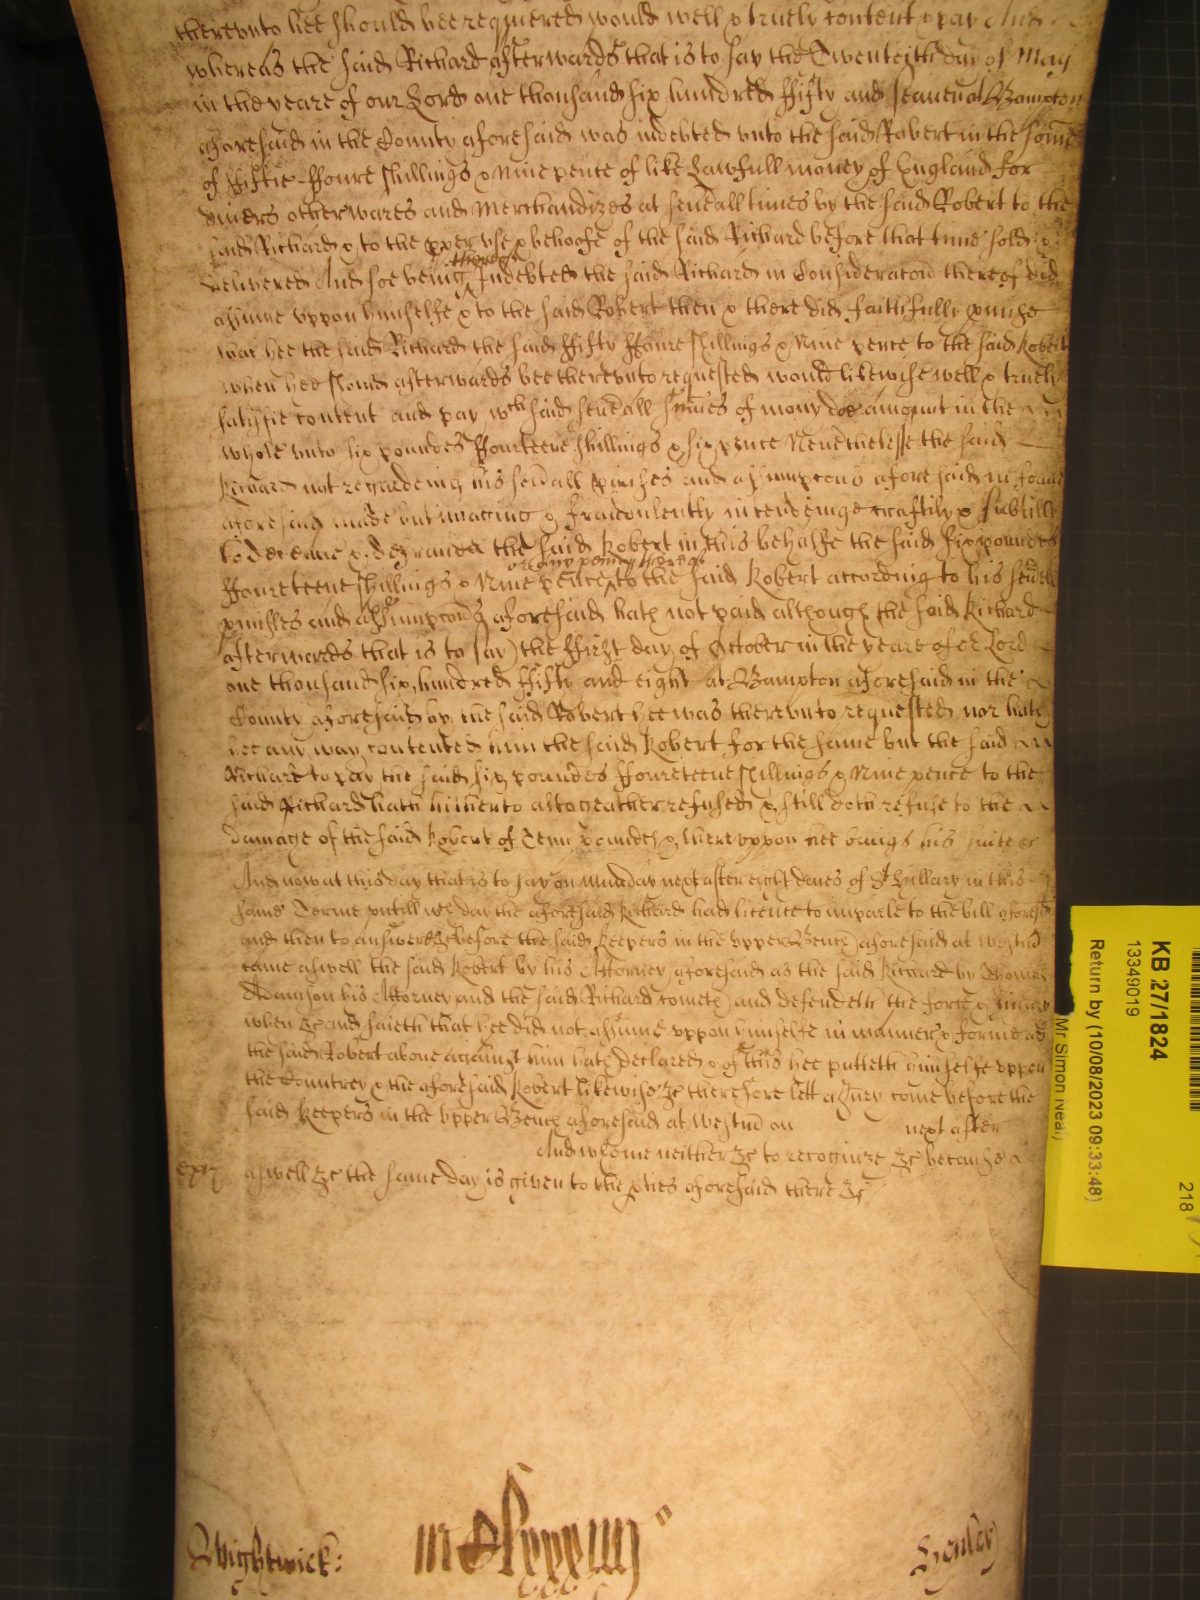 therevnto hee should bee requiered would well & truely content & pay And
whereas the said Richard afterwards that is to say the Twenteith day of May
in the yeare of our Lord one thousand six hundred ffifty and seauen at Bampton
aforesaid in the County aforesaid was indebted vnto the said Robert in the some
of ffiftie ffoure shillings & Nine pence of like Lawfull money of England for
diuers other wares and Merchandizes at seuall times by the said Robert to the
said Richard & to the pper vse & behoofe of the said Richard before that time sold &
deliuered And soe being thereof Indebted the said Richard in Consideracon thereof did
assume vppon himselfe & to the said Robert then & there did faithfully pmise
that hee the said Richard the said ffifty ffoure shillings & Nine pence to the said Robert
when hee should afterwards bee therevnto requested would likewise well & truely
satisfie content and pay wch said seuall sumes of mony doe amount in the
whole vnto six poundes ffourteene shillings & six pence Neuerthelesse the said
Richard not regardeing his seuall pmises and assumpcons aforesaid in forme
aforesaid made but imagining & fraudulently intendinge craftily & subtilly
to deceaue & defraude the said Robert in this behalfe the said six poundes
ffoureteene shillings & Nine pence or any penny thereof to the said Robert according to his seuall
pmisses and assumpcons aforesaid hath not paid although the said Richard
afterwards that is to say the ffirst day of October in the yeare of or Lord
one thousand six hundred ffifty and eight at Bampton aforesaid in the
County aforesaid by the said Robert hee was therevnto requested nor hath
hee any way contented him the said Robert for the same but the said
Richard to pay the said six poundes ffoureteene shillings & Nine pence to the
said Richard hath hitherto altogeather refused & still doth refuse to the
damage of the said Robert of Tenn poundes & therevppon hee brings his suite &c
And now at this day that is to say on Munday next after eight daies of St Hillary in this
same Terme vntill wch day the aforesaid Richard had licence to imparle to the bill aforesaid
and then to answere &c before the said Keepers in the vpper Bench aforesaid at Westm
came aswell the said Robert by his Attorney aforesaid as the said Richard by Thomas
Adamson his Attorney and the said Richard cometh and defendeth the force & iniury
when &c and saieth that hee did not assume vppon himselfe in manner & forme as
the said Robert aboue against him hath declared & of this hee putteth himselfe vppon
the Countrey & the aforesaid Robert likewise &c therefore lett a Jury come before the
said Keepers in the vpper Bench aforesaid at Westm on next after
And whome neither &c to recognize &c because
aswell &c the same day is given to the pties aforesaid there &c
Wightwick:
Henley
KB 27/1824
13349019
Return by (10/08/2023 09:33:48)
Mr Simon Neal
218